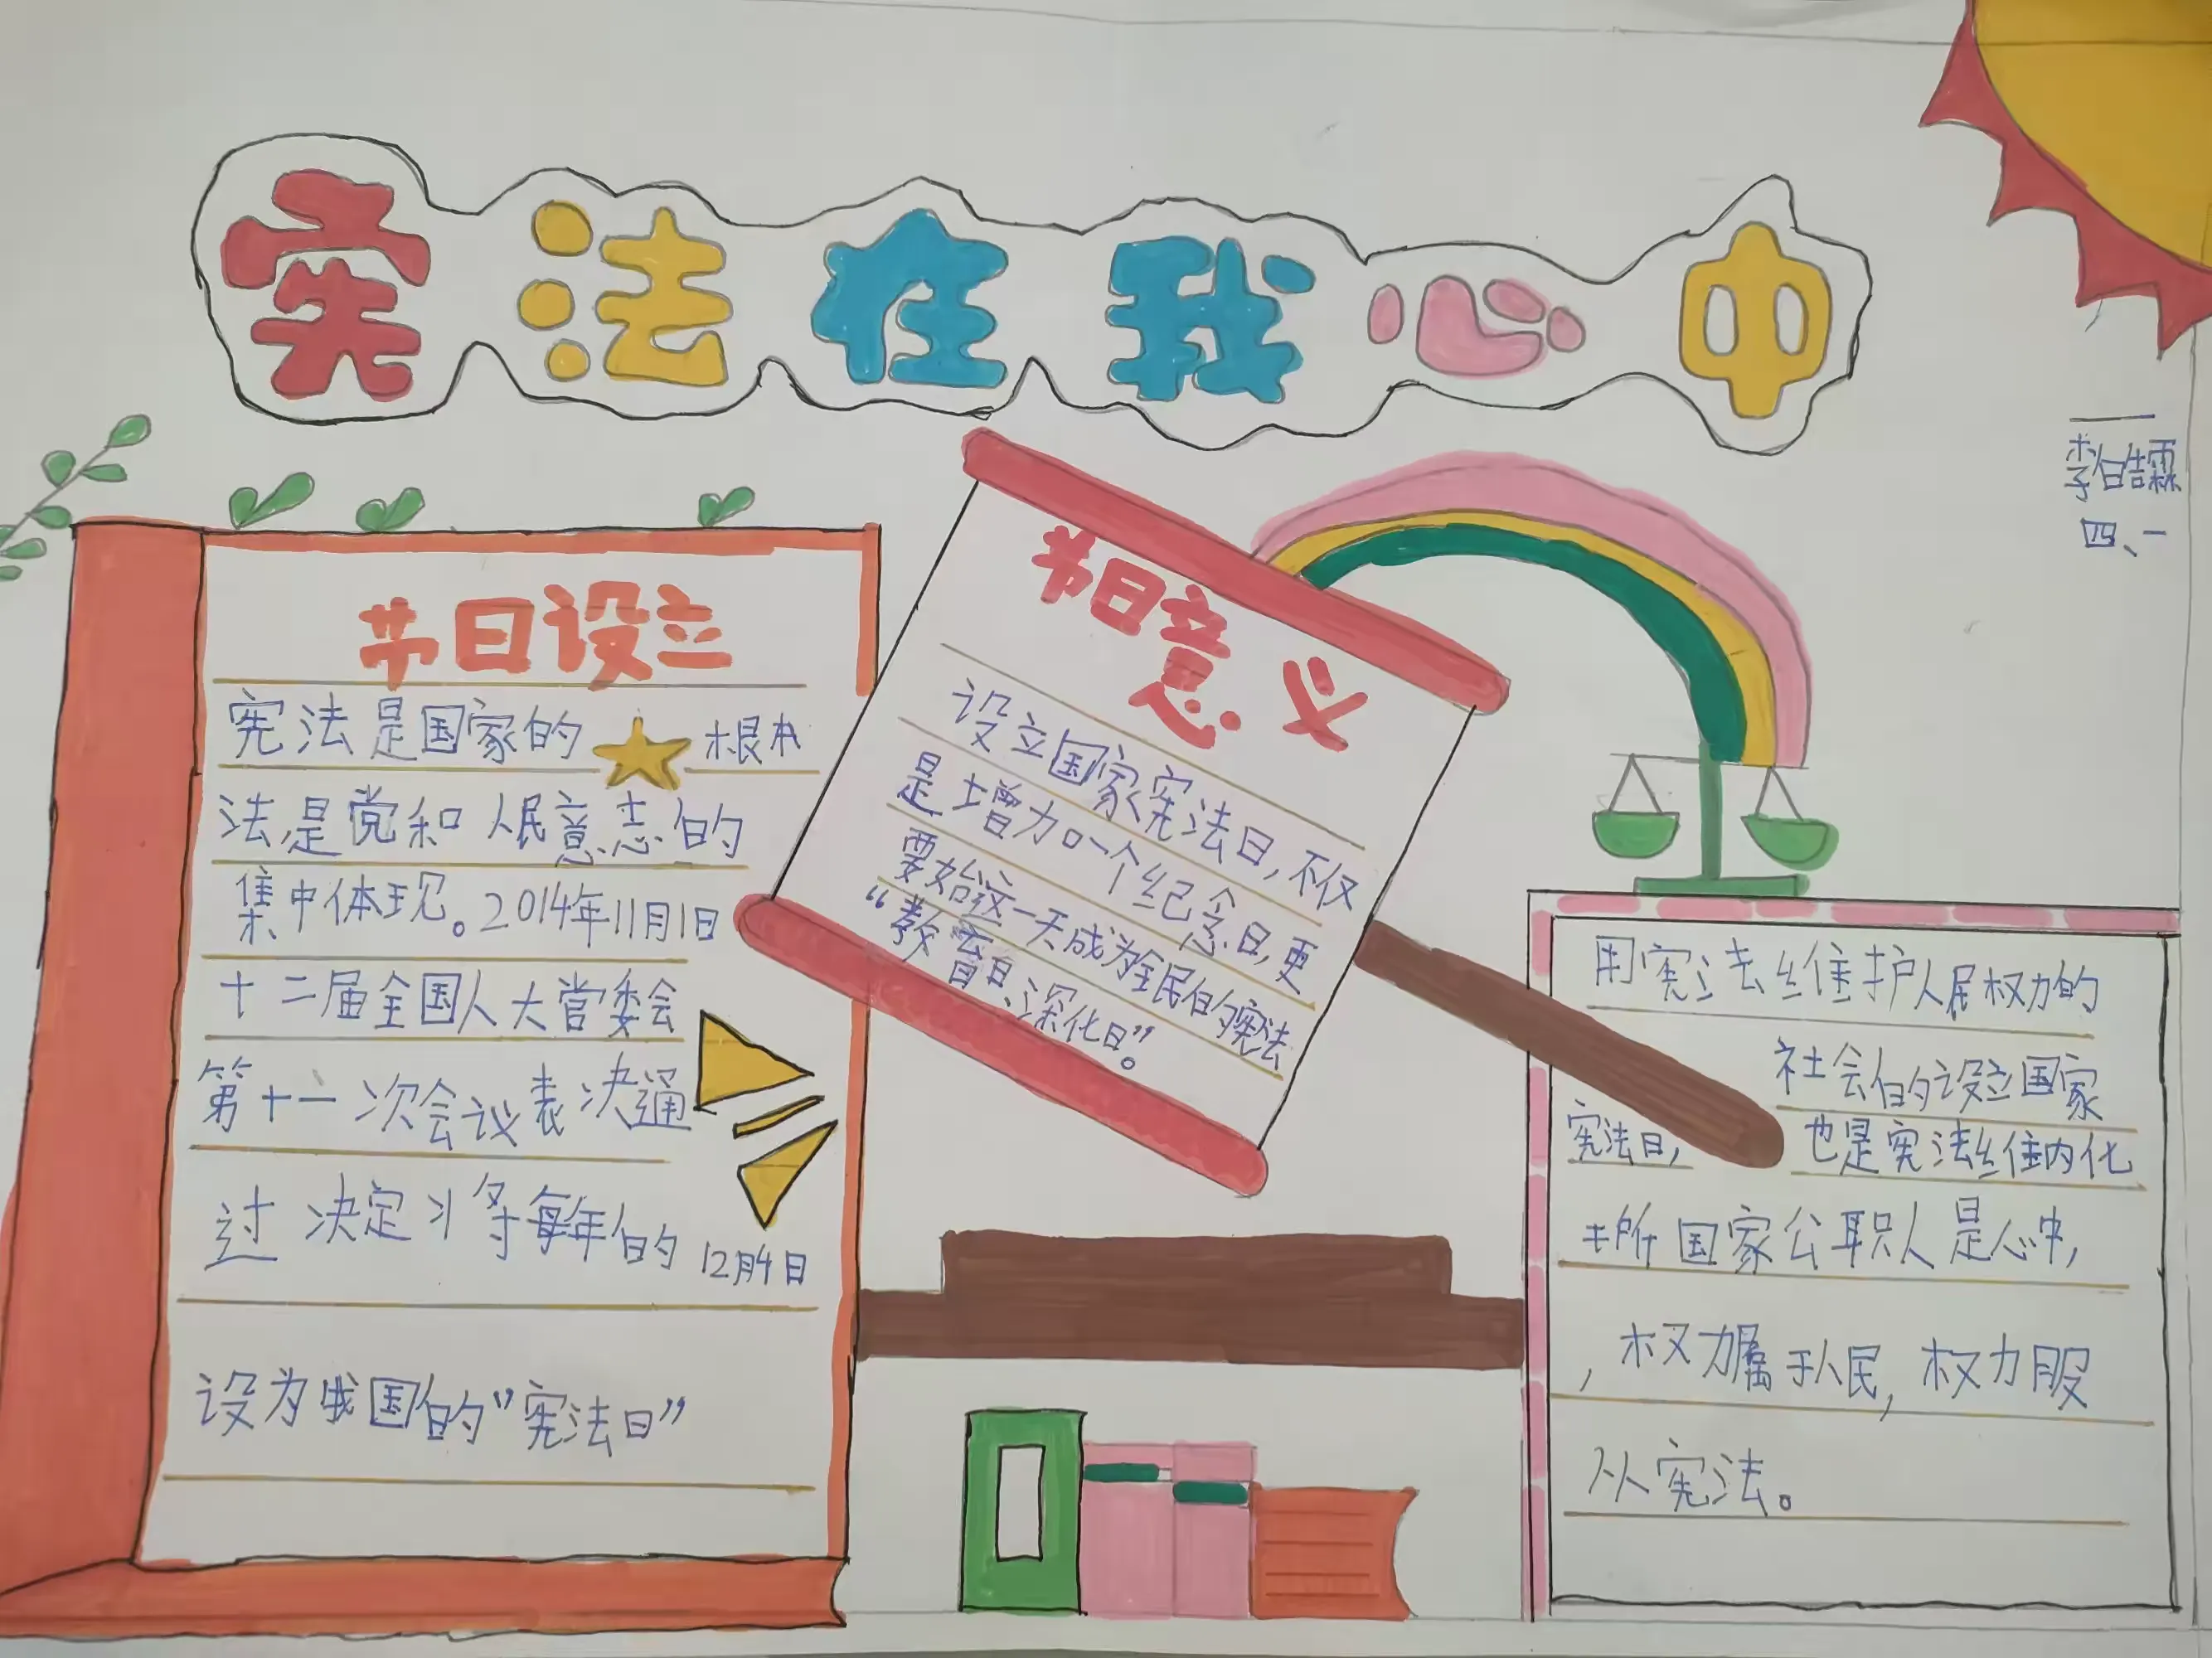 宪法在我心中
李皓霖
四、一
节日设立
宪法是国家的根本
法是党和人民意志的
集中体现。2014年11月1日
十二届全国人大常委会
第十一次会议表决通
过决定将每年的12月4日
设为我国的"宪法日"
节日意义
设立国家宪法日,不仅
是增加一个纪念日,更
要始这一天成为全民的宪法
“教育日、深化日”。
用宪法维护人民权力的
社会的设立国家
宪法日,也是宪法维内化
国家公职人是心中,
,权力属于人民,权力服
从宪法。